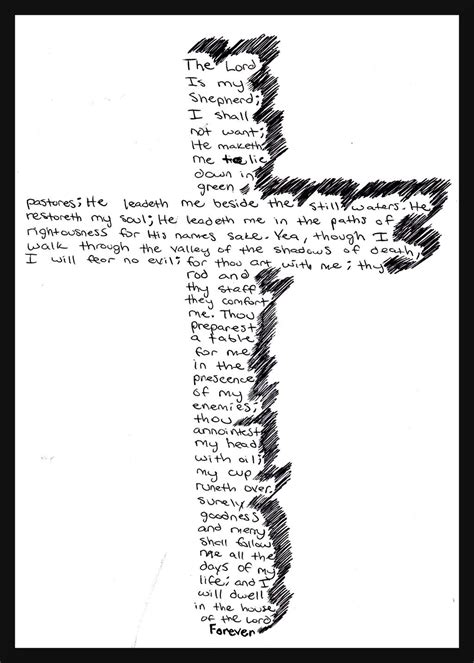 The Lord
Is my
Shepherd;
I shall
not want;
He maketh
me to lie
down in
green
pastores; He leadeth me beside the still waters. He
restoreth my soul; He leadeth me in the paths of
rightousness for His names sake. Yea, though I
walk through the valley of the shadows of death,
I will fear no evil; for thou art with me; thy
rod and
thy staff
they comfort
me. Thou
preparest
a table
for me
in the
prescence
of my
enemies;
thou
annointest
my head
with oil;
my cup
runeth over.
Surely
goodness
and mercy
shall follow
me all the
days of my
life; and I
will dwell
in the house
of the Lord
Forever